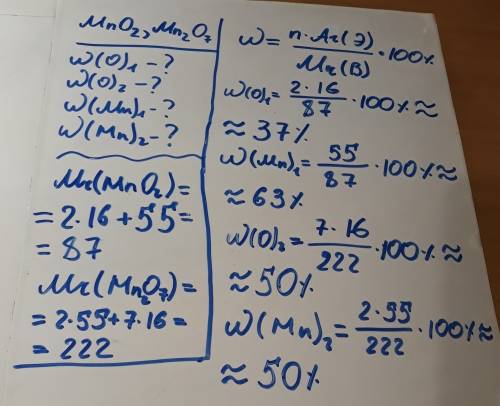 MnO₂, Mn₂O₇
ω(O)₁ - ?
ω(O)₂ - ?
ω(Mn)₁ - ?
ω(Mn)₂ - ?
Mr(MnO₂)=
=2·16+55=
=87
Mr(Mn₂O₇)=
=2·55+7·16=
=222
ω= n·Ar(Э) / Mr(В) ·100%
ω(O)₁= 2·16 / 87 ·100%≈
≈37%
ω(Mn)₁= 55 / 87 ·100%≈
≈63%
ω(O)₂= 7·16 / 222 ·100%≈
≈50%
ω(Mn)₂= 2·55 / 222 ·100%≈
≈50%